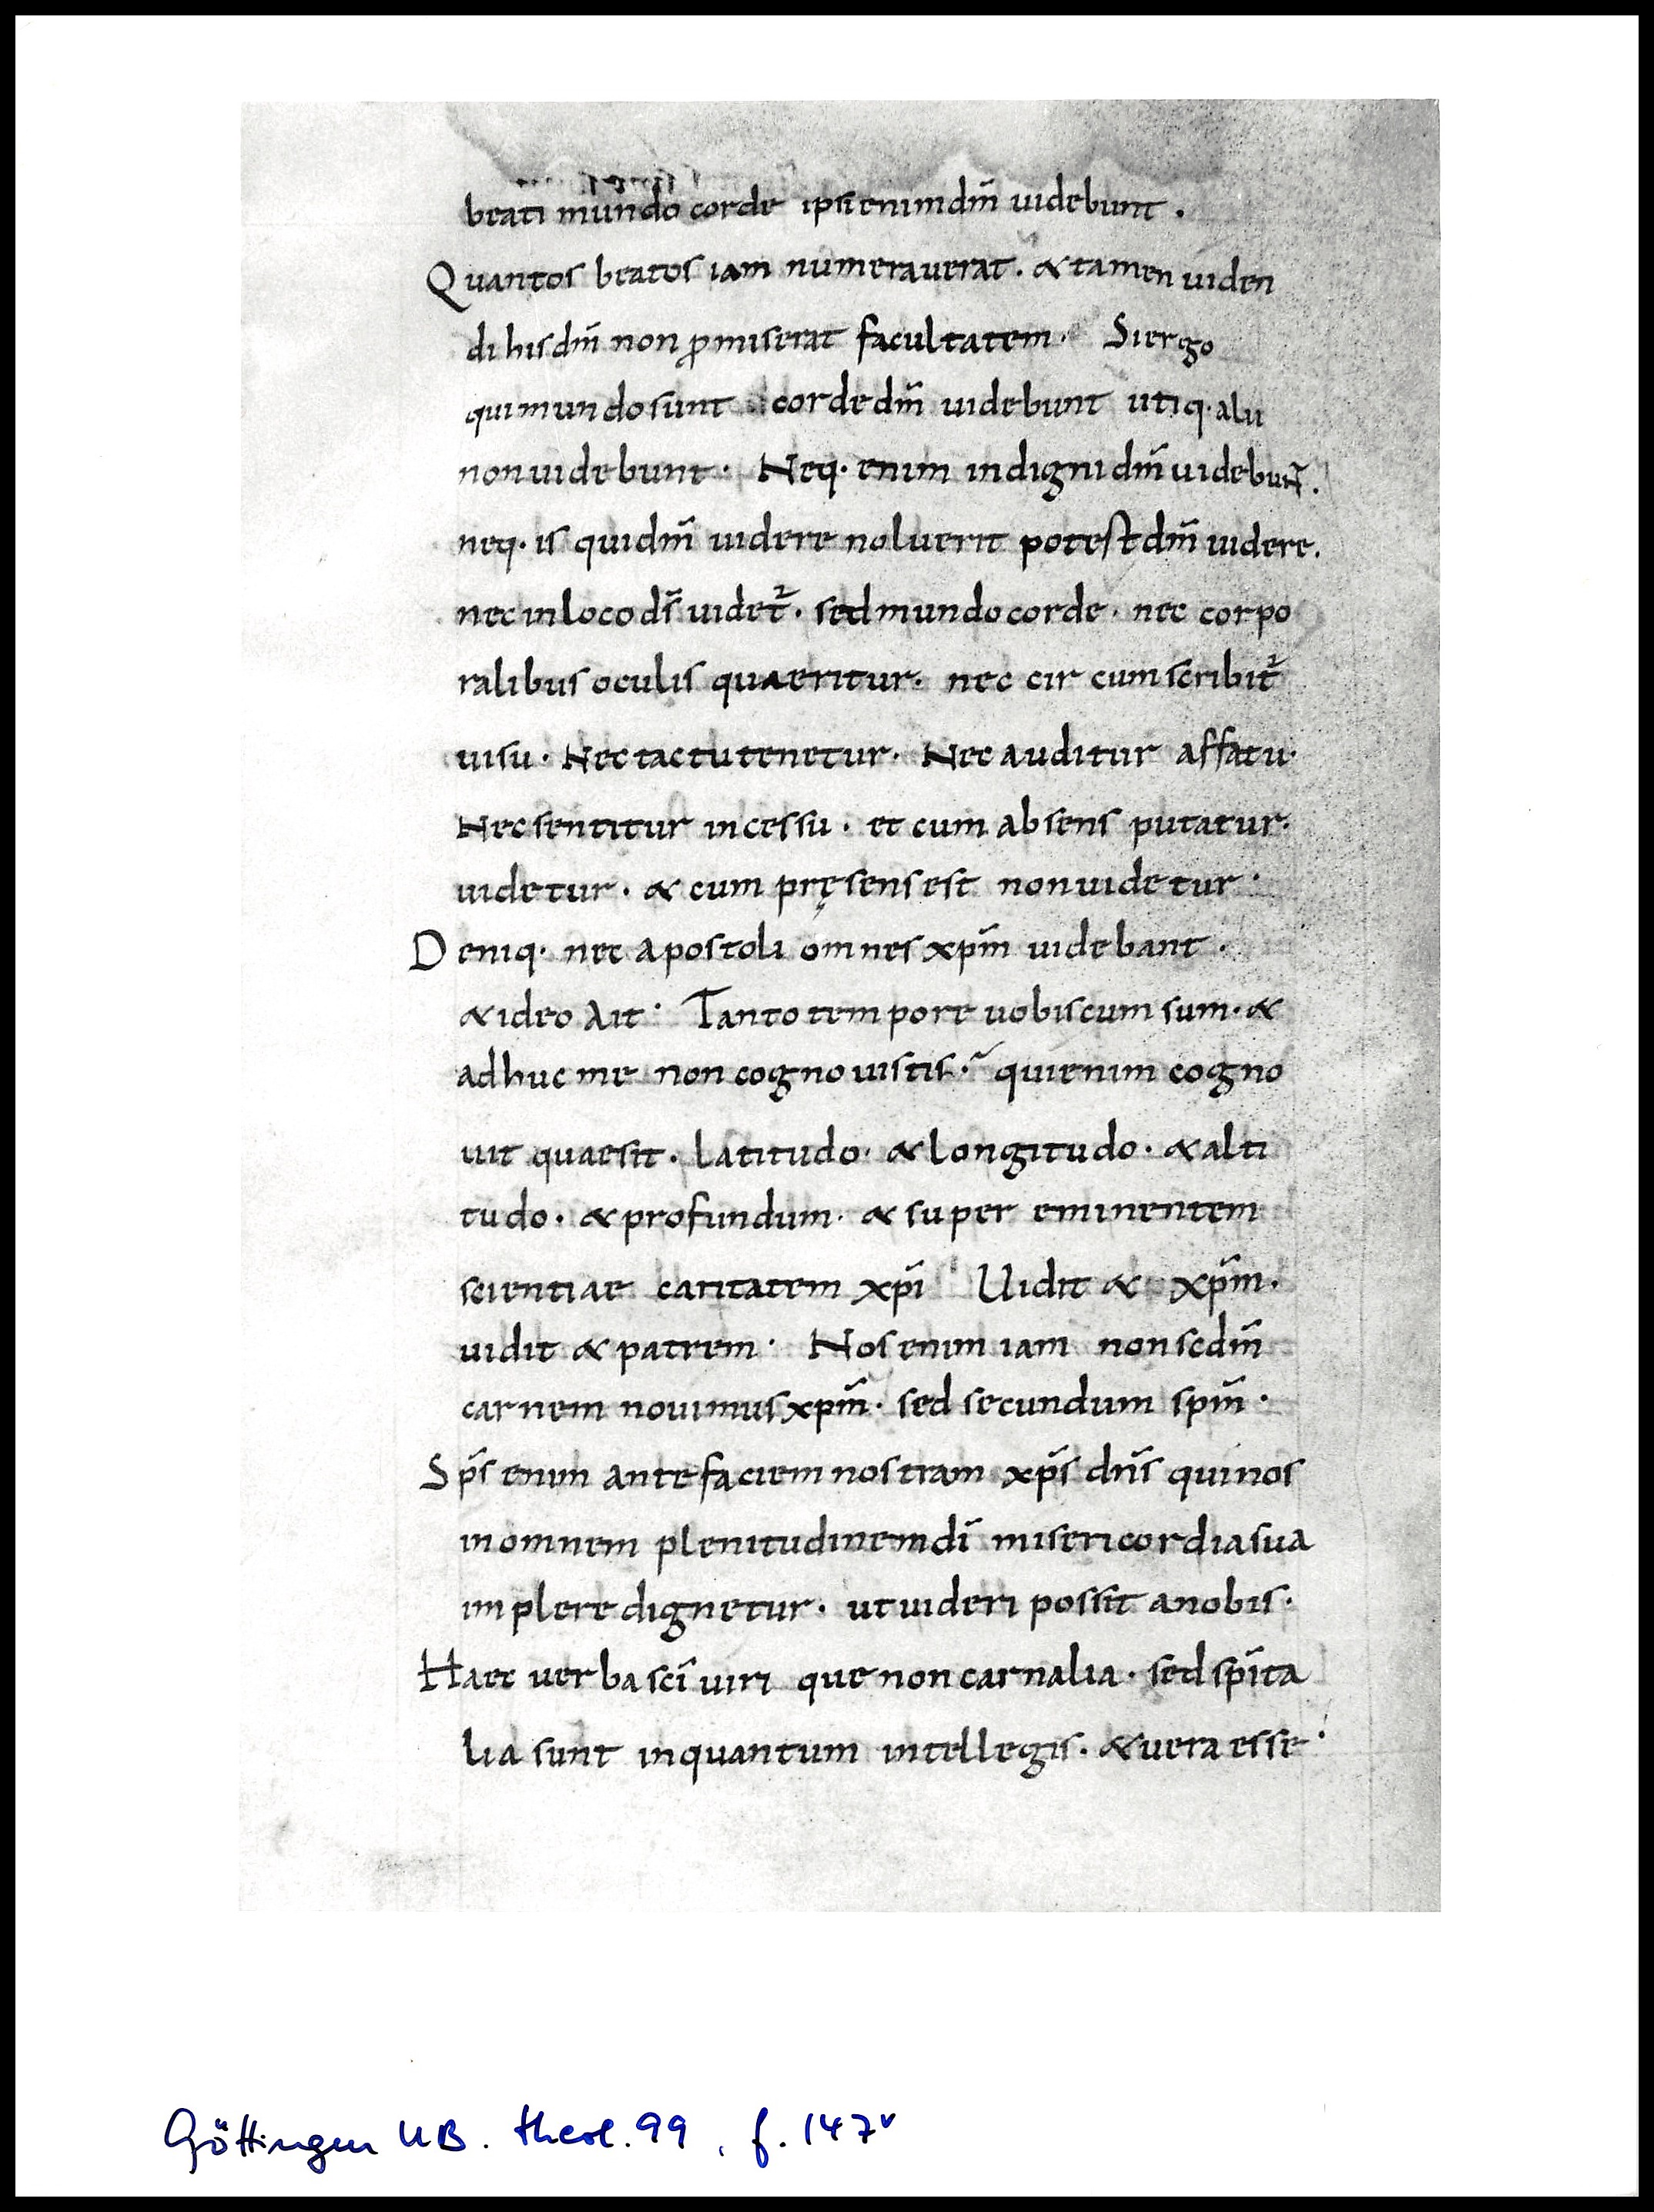 beati mundo corde ipsi enim dm̄ uidebunt .
Quantos beatos iam numerauerat . & tamen uiden
di his dm̄ non ꝓmiserat facultatem · Si ergo
qui mundo sunt corde dm̄ uidebunt utiq· alii
non uidebunt · Neq· enim indigni dm̄ uidebunt̃ .
neq· is qui dm̄ uidere noluerit potest dm̄ uidere .
nec in loco ds̄ uidet᷑ · sed mundo corde · nec corpo
ralibus oculis quaeritur · nec circumscribit᷑
uisu · Nec tactu tenetur · Nec auditur affatu ·
Nec sentitur incessu · et cum absens putatur ·
uidetur · & cum pręsens est non uidetur ·
Deniq· nec apostoli omnes xpm̄ uidebant .
& ideo ait · Tanto tempore uobiscum sum · &
adhuc me non cognouistis ·~ qui enim cogno
uit quae sit · latitudo · & longitudo · & alti
tudo · & profundum · & super eminentem
scientiae caritatem xpī Uidit & xpm̄ ·
uidit & patrem · Nos enim iam non scdm̄
carnem nouimus xpm̄ · sed secundum spm̄ ·
Sps̄ enim ante faciem nostram xps̄ dns̄ qui nos
in omnem plenitudinem dī misericordia sua
implere dignetur · ut uideri possit a nobis ·
Haec uerba scī uiri que non carnalia · sed spīta
lia sunt inquantum intellegis · & uera esse ·
Göttingen UB. theol. 99, f. 147ᵛ